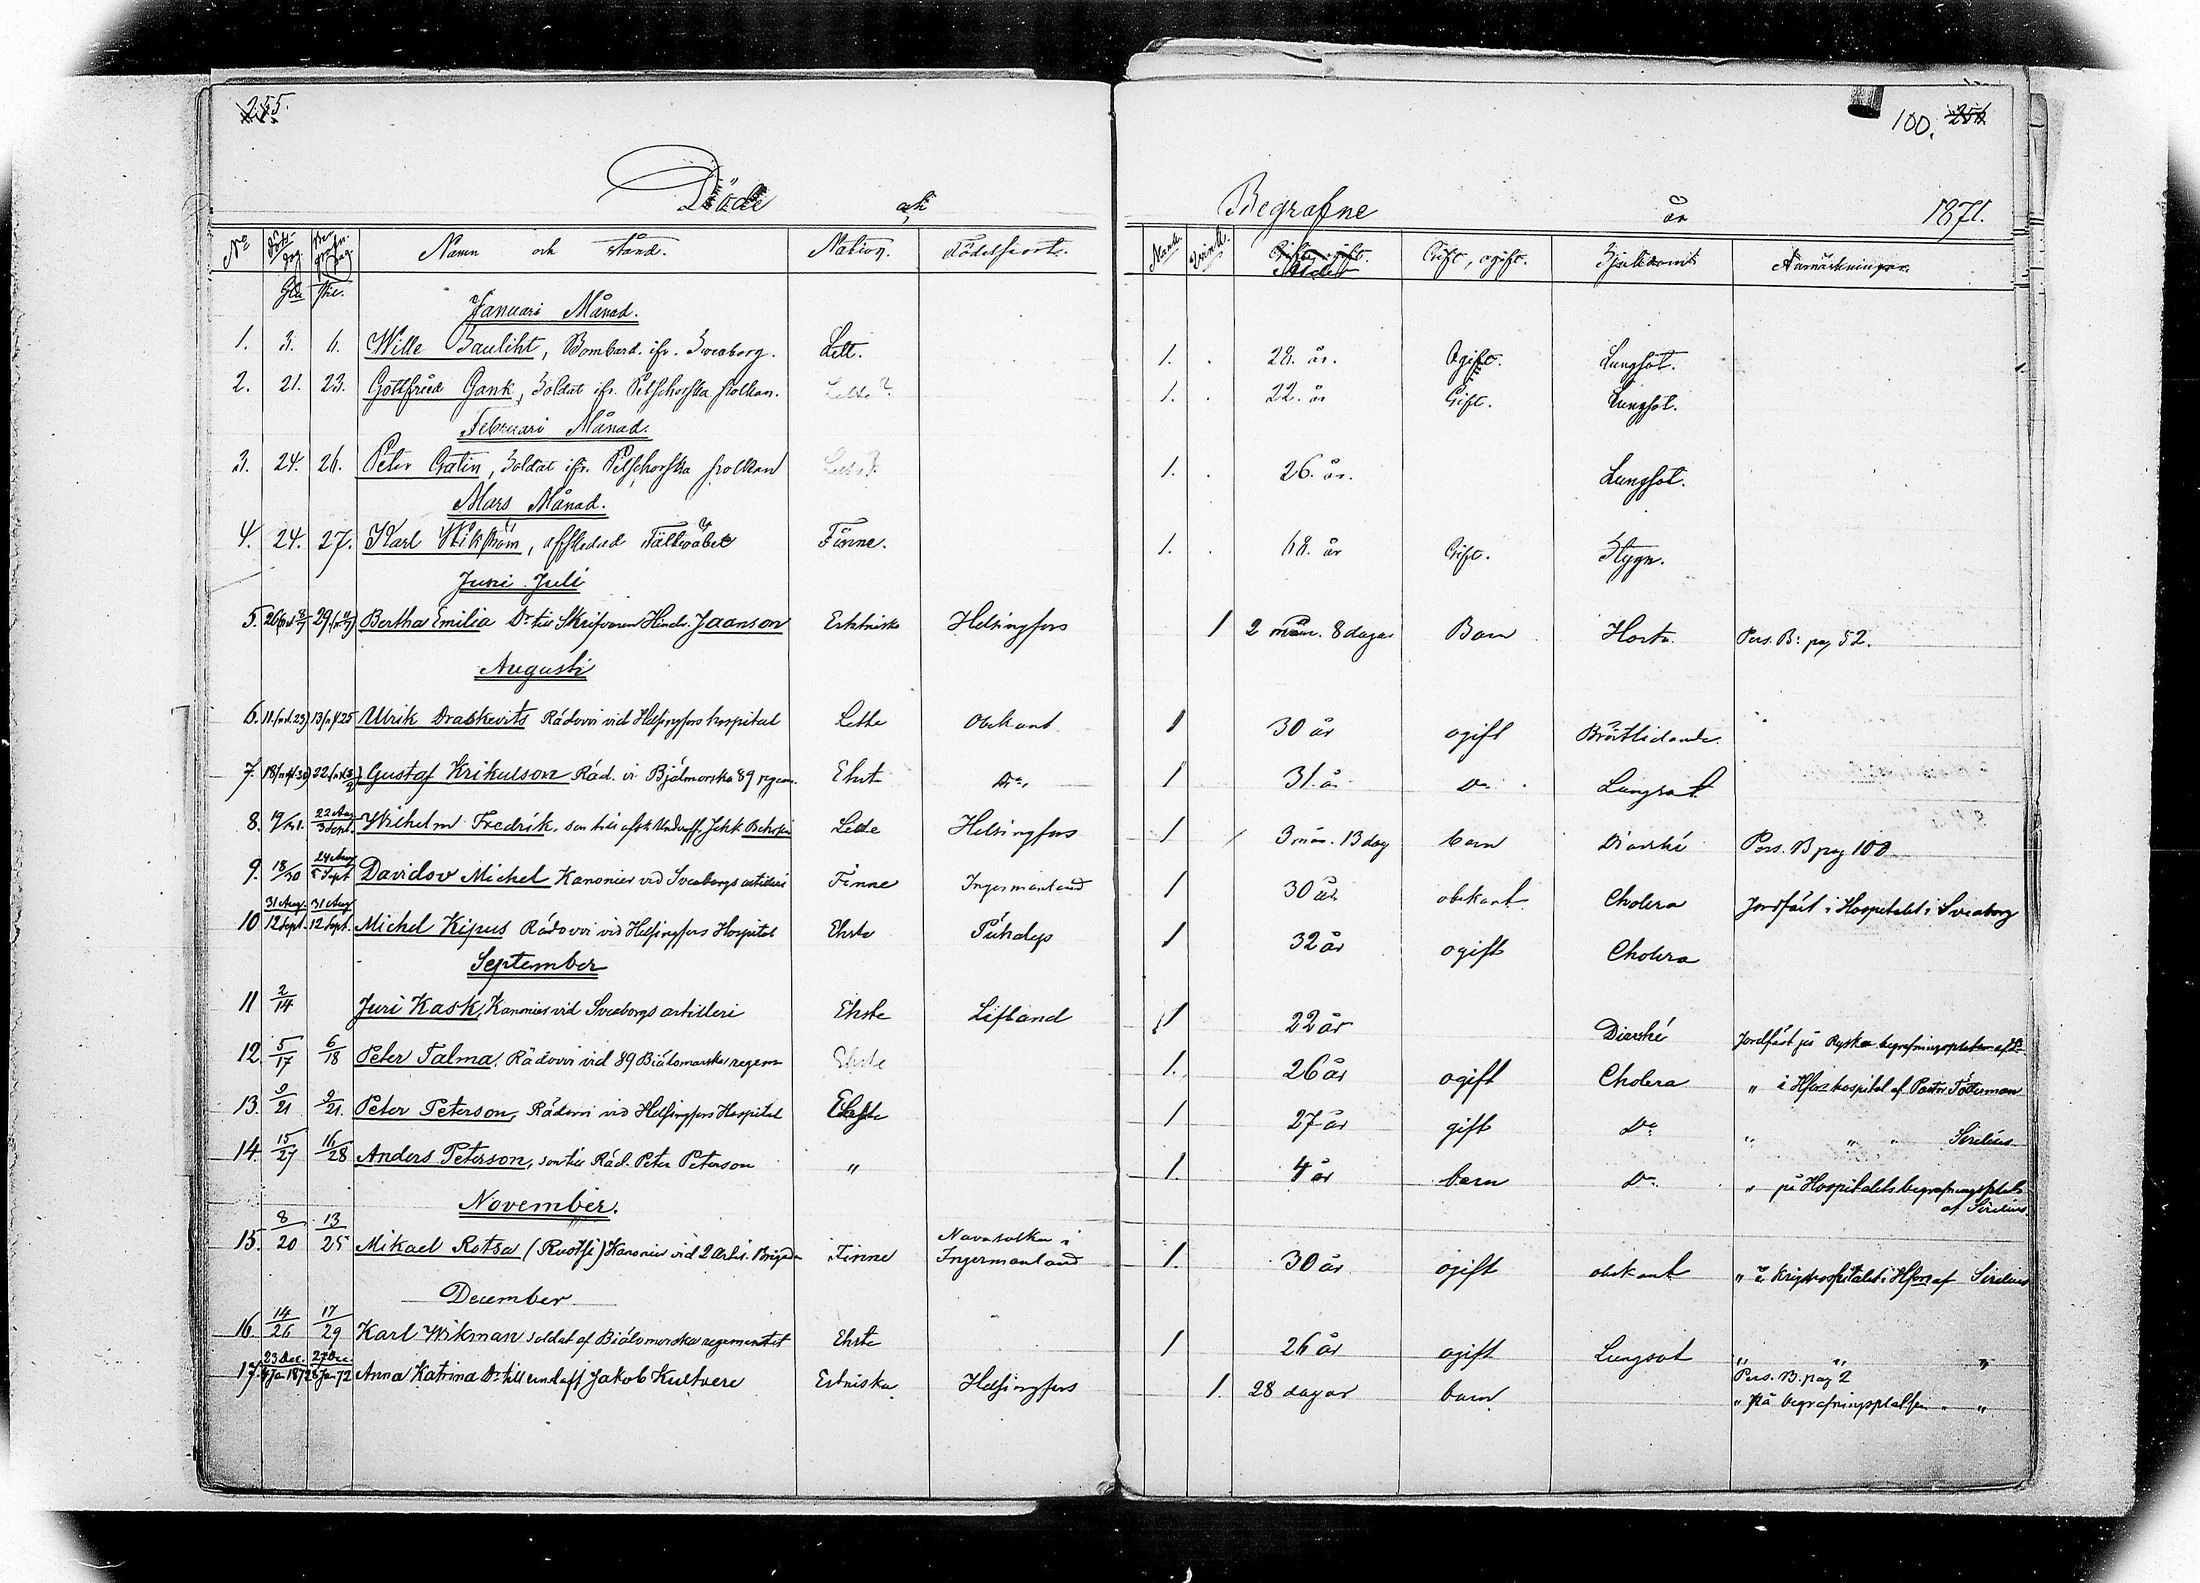 255.
100. 256
Döde och Begrafne år 1871.
No Döds-dag. Begrafn. dag. Namn och stånd. Nation. Födelseort. Mank. Qvink. Ålder Gift, ogift. Sjukdomit Anmärkningar.
Januari Månad.
1. 3. 6. Wille Bauliht, Bombard. ifr. Sveaborg. Lett. 1. 28. år. Ogift. Lungsot.
2. 21. 23. Gottfried Gank, Soldat ifr. Petschorska polken. Lette? 1. 22. år Gift. Lungsot.
Februari Månad.
3. 24. 26. Peter Gratin, Soldat ifr. Petschorska polken 1. 26. år. Lungsot.
Mars Månad.
4. 24. 27. Karl Wikström, afskedad Fältväbel Finne. 1. 68. år Gift. Slagn.
Juni Juli
5. 26 29. Bertha Emilia Dr till Skrifvaren Hindr. Jaanson Estniska Helsingfors 1 2 mån. 8 dagar Barn Hosta Pers. B: pag 52.
Augusti
6. 11. (n. st. 23) 13 (n. st 25 Ulrik Draskevits Rádovoi vid Helsingfors hospital Lette Obekant 1 30 år ogift Bröstlidande.
7. 18 (n. st 30) 22. Gustaf Krikulson Rád. vi Bjálmorska 89 regem. Ehst Do. 1 31. år Do. Lungsot
8. 19/ 22 Aug 3 Sept. Wilhelm Fredrik, son till afsk Underoff. Jakk Lette Helsingfors 1 3 mån. 13 dag barn Diarrhé Pers. B pag 100
9. 18/30 24 Aug 5 Sept Davidov Michel Kanonier vid Sveaborgs artilleri Finne Ingermanland 1 30 år obekant Cholera Jordfäst i Hospitalet i Sveaborg
10 31 Aug. 12 Sept. 31 Aug 12 Sept. Michel Kipus Rádovoi vid Helsingfors Hospital Ehste Pühalep 1 32 år ogift Cholera
September
11 2/14 Juri Kask, Kanonier vid Sveaborgs artilleri Ehste Lifland 1 22 år Diarrhé Jordfäst på Ryska begrafningsplatsen af Do
12. 5/17 6/18 Peter Talma, Rádovoi vid 89 Biálomorska regem Ehste 1. 26 år ogift Cholera " i Hfors hospital af Pastor Tötterman
13. 9/21 9/21. Peter Peterson, Rádovoi vid Helsingfors Hospital Ehste 1 27 år gift Do " " " Sirelius
14. 15/27 16/28 Anders Peterson, son till Rád. Peter Peterson " 1. 4 år barn Do " på Hospitalets begrafningsplats
af Sirelius
November.
15. 8/20 13/25 Mikael Rotsa (Ruotsi) Kanonier vid 2 Artil. Brigaden Finne Navasolka i Ingermanland 1. 30 år ogift obekant " i Krigshospitalet i Hfors af Sirelius
December
16. 14/26 17/29 Karl Wikman soldat af Biálomorska regementet Ehste 1 26 år ogift Lungsot " " "
17. 23 Dec. 4 Jan 1872 27 Dec 8 Jan 72 Anna Katrina Dr till Jakob Kultvere Estniska Helsingfors 1. 28 dagar barn. Pers. B. pag 2
" på begrafningsplatsen " "